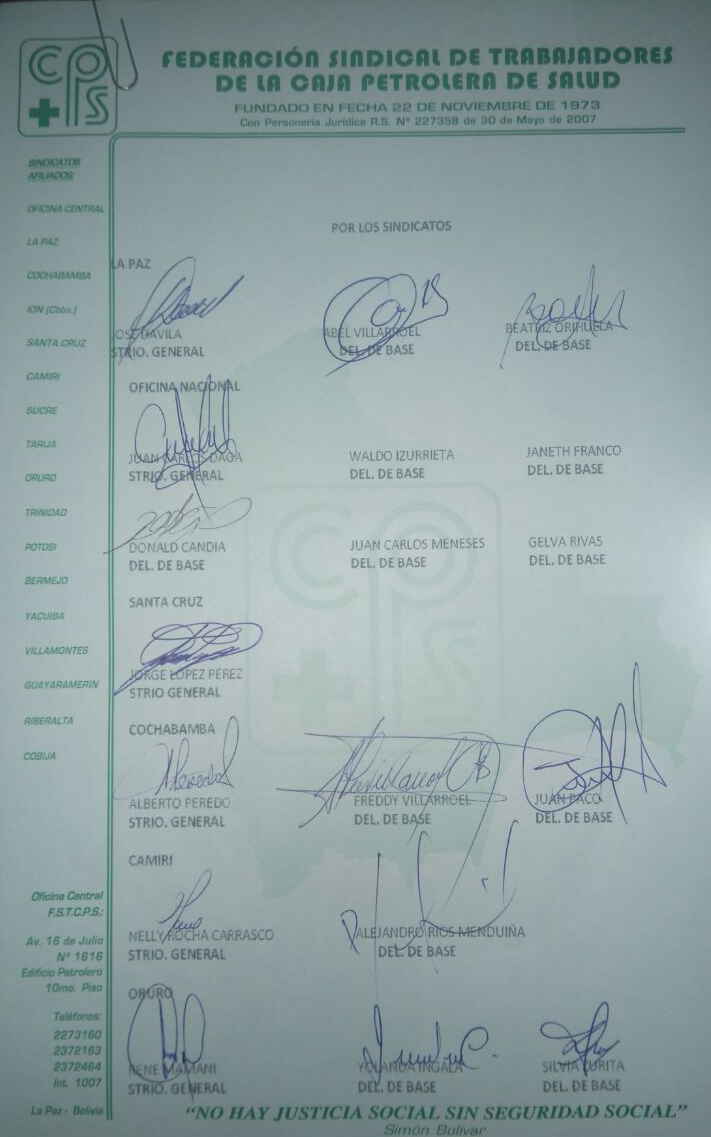 CPS
FEDERACIÓN SINDICAL DE TRABAJADORES
DE LA CAJA PETROLERA DE SALUD
FUNDADO EN FECHA 22 DE NOVIEMBRE DE 1973
Con Personería Jurídica R.S. Nº 227358 de 30 de Mayo de 2007
SINDICATOS
AFILIADOS:
OFICINA CENTRAL
LA PAZ
COCHABAMBA
ION (Cbba.)
SANTA CRUZ
CAMIRI
SUCRE
TARIJA
ORURO
TRINIDAD
POTOSI
BERMEJO
YACUIBA
VILLAMONTES
GUAYARAMERIN
RIBERALTA
COBIJA
Oficina Central
F.S.T.C.P.S.:
Av. 16 de Julio
Nº 1616
Edificio Petrolero
10mo. Piso
Teléfonos:
2273160
2372163
2372464
Int. 1007
La Paz - Bolivia
POR LOS SINDICATOS
LA PAZ
JOSE DAVILA ABEL VILLARROEL BEATRIZ ORIHUELA
STRIO. GENERAL DEL. DE BASE DEL. DE BASE
OFICINA NACIONAL
JUAN CARLOS DAGA WALDO IZURRIETA JANETH FRANCO
STRIO. GENERAL DEL. DE BASE DEL. DE BASE
DONALD CANDIA JUAN CARLOS MENESES GELVA RIVAS
DEL. DE BASE DEL. DE BASE DEL. DE BASE
SANTA CRUZ
JORGE LOPEZ PÉREZ
STRIO GENERAL
COCHABAMBA
ALBERTO PEREDO FREDDY VILLARROEL JUAN PACO
STRIO. GENERAL DEL. DE BASE DEL. DE BASE
CAMIRI
NELLY ROCHA CARRASCO ALEJANDRO RIOS MENDUIÑA
STRIO. GENERAL DEL. DE BASE
ORURO
RENE MAMANI YOLANDA INGALA SILVIA ZURITA
STRIO. GENERAL DEL. DE BASE DEL. DE BASE
"NO HAY JUSTICIA SOCIAL SIN SEGURIDAD SOCIAL"
Simón Bolívar